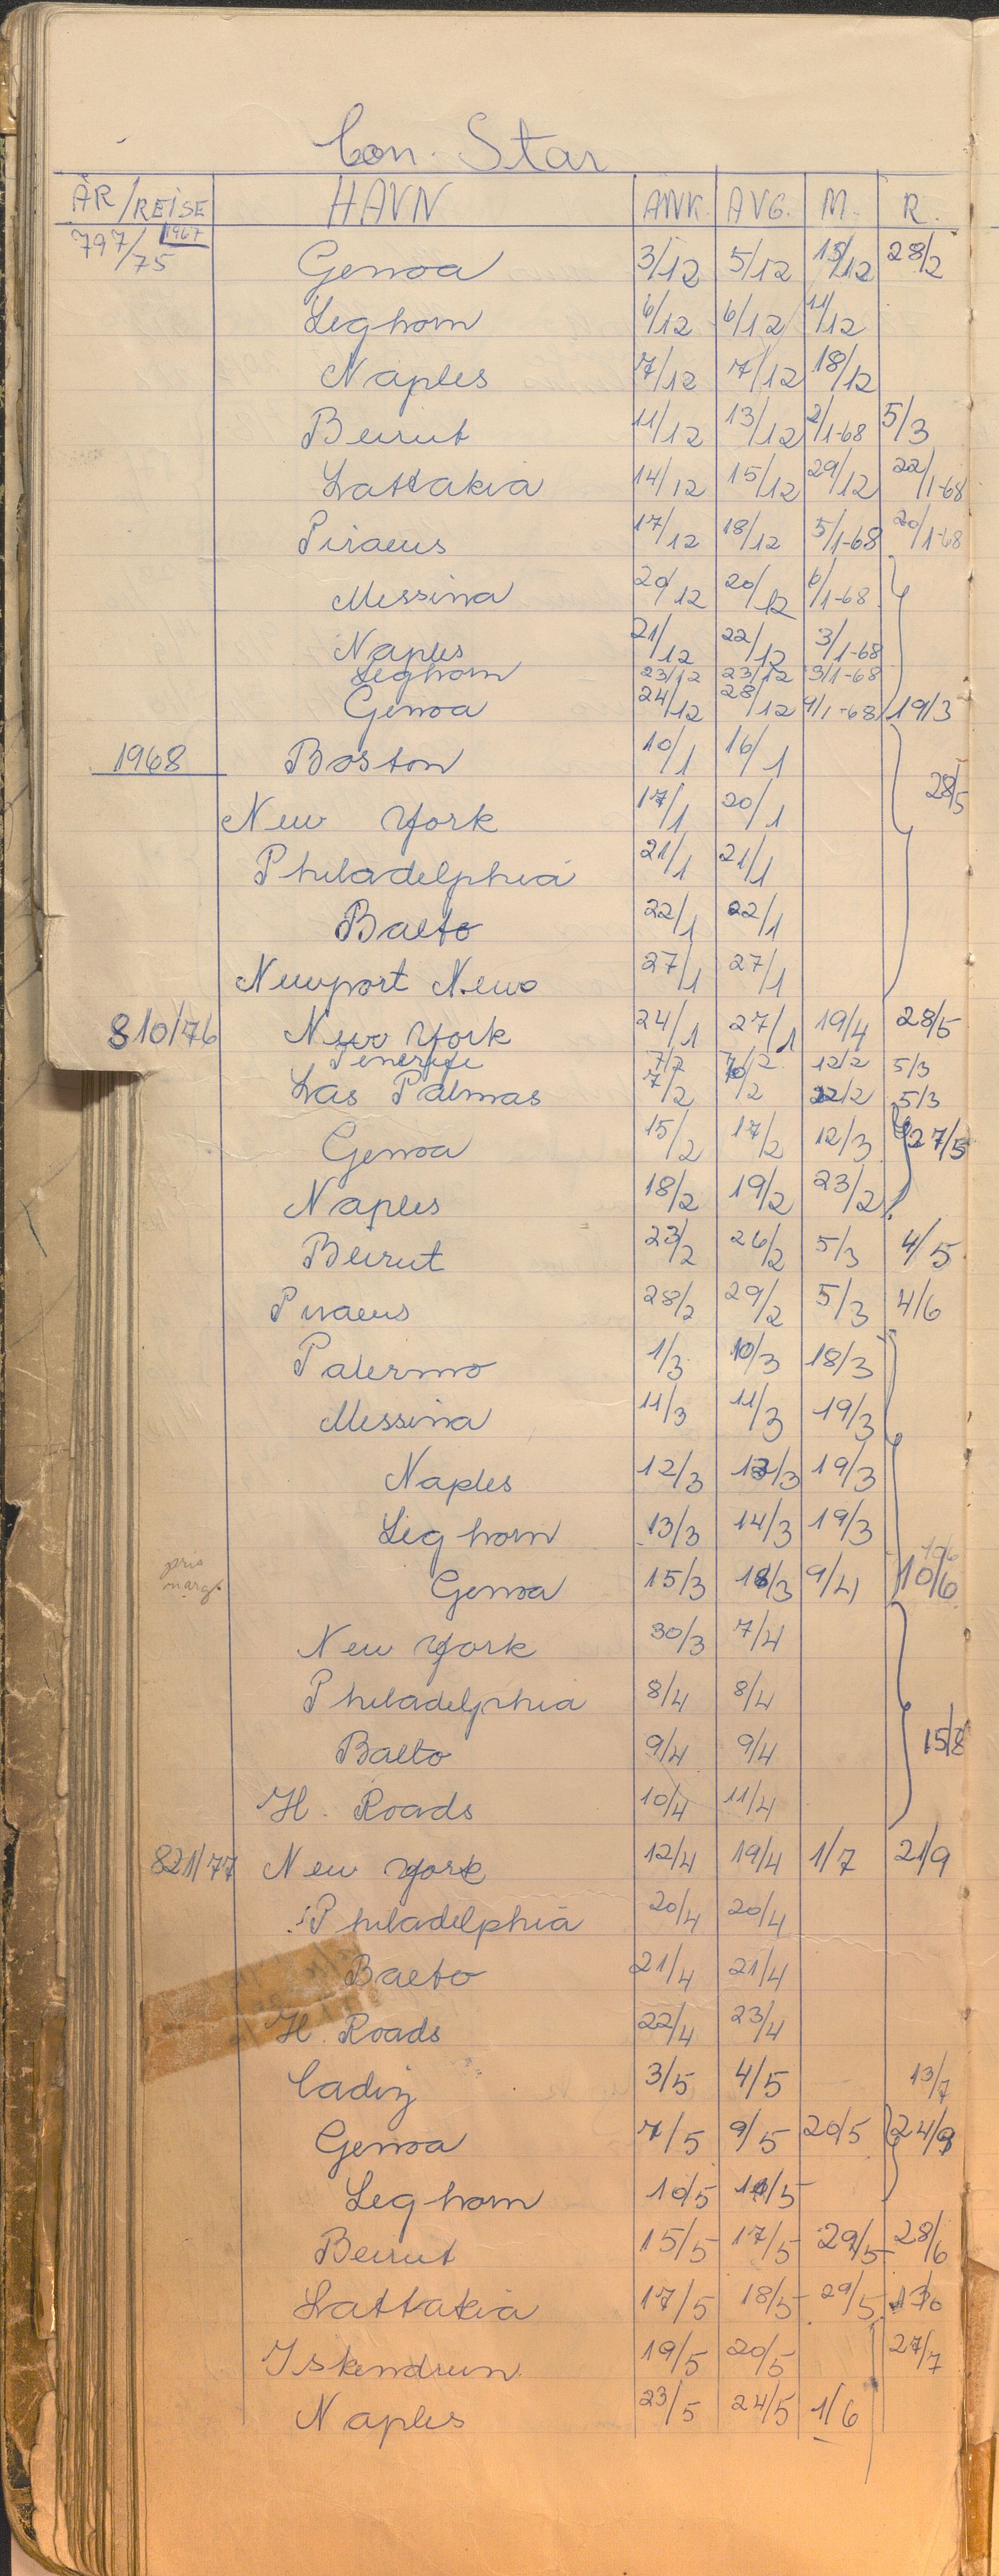 Con. Star
ÅR/REISE HAVN ANK. AVG. M. R.
797/75 1967 Genoa 3/12 5/12 15/12 28/2
Leghorn 6/12 6/12 11/12
Naples 7/12 7/12 18/12
Beirut 11/12 13/12 2/1-68 5/3
Lattakia 14/12 15/12 29/12 22/1-68
Piraeus 17/12 18/12 5/1-68 20/1-68
Messina 20/12 20/12 6/1-68
Naples 21/12 22/12 3/1-68
Leghorn 23/12 23/12 3/1-68
Genoa 24/12 28/12 9/1-68 19/3
1968 Boston 10/1 16/1 28/5
New York 17/1 20/1
Philadelphia 21/1 21/1
Balto 22/1 22/1
Newport News 27/1 27/1
810/76 New York 24/1 27/1 19/4 28/5
Tenerife 7/2 12/2 5/3
Las Palmas 7/2 22/2 5/3
Genoa 15/2 17/2 12/3 27/5
Naples 18/2 19/2 23/2
Beirut 23/2 26/2 5/3 4/5
Piraeus 28/2 29/2 5/3 4/6
Palermo 1/3 10/3 18/3
Messina 11/3 11/3 19/3
Naples 12/3 19/3
Leghorn 13/3 14/3 19/3
Genoa 15/3 18/3 9/4 10/6
New York 30/3 7/4
Philadelphia 8/4 8/4
Balto 9/4 9/4 15/8
H. Roads 10/4 11/4
821/77 New York 12/4 19/4 1/7 21/9
Philadelphia 20/4 20/4
Balto 21/4 21/4
H. Roads 22/4 23/4
Cadiz 3/5 4/5 13/7
Genoa 7/5 9/5 20/5 24/9
Leghorn 10/5
Beirut 15/5 17/5 29/5 28/6
Lattakia 17/5 18/5 29/5
Iskendrun 19/5 20/5 27/7
Naples 23/5 24/5 1/6